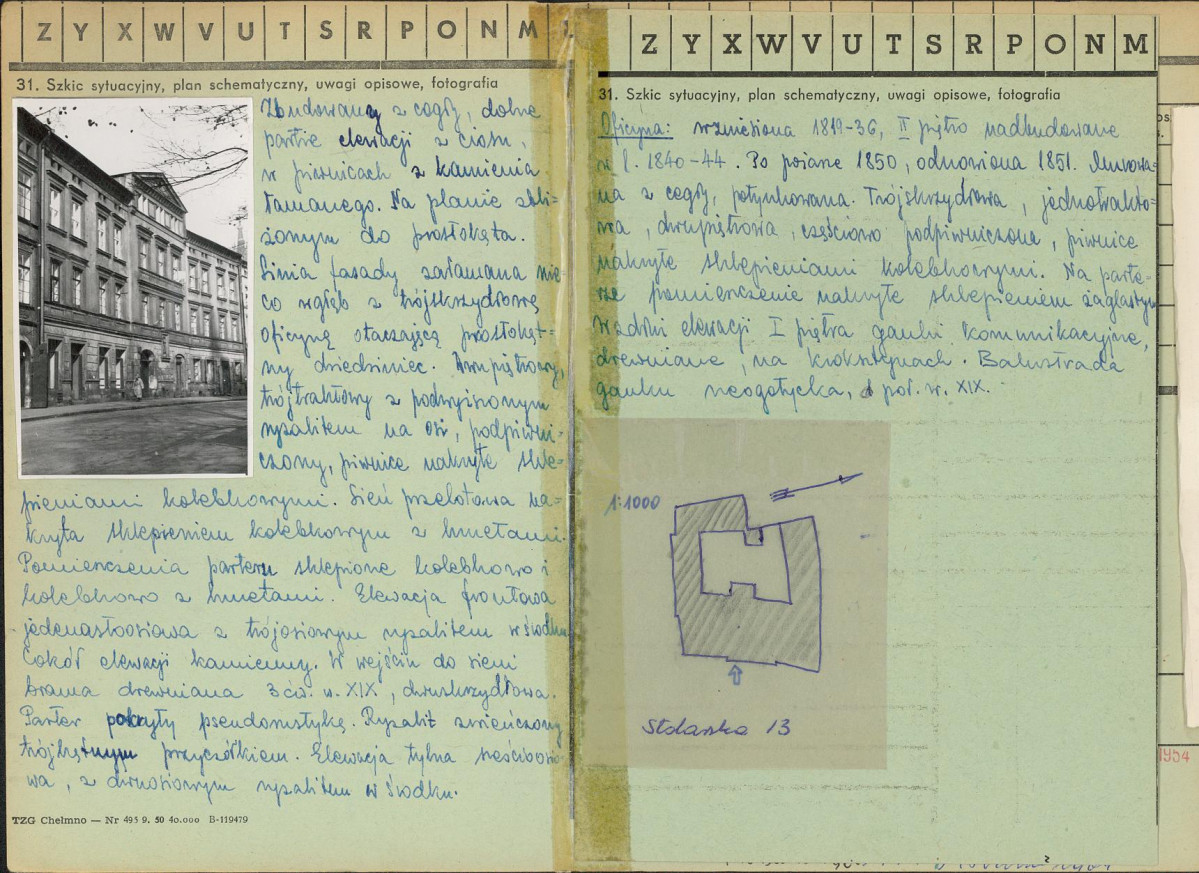 Z Y X W V U T S R P O N M
31. Szkic sytuacyjny, plan schematyczny, uwagi opisowe, fotografia
Zbudowany z cegły, dolne
partie elewacji z ciosu,
w piwnicach z kamienia
łamanego. Na planie zbli-
żonym do prostokąta.
Linia fasady załamana nie-
co wgłąb z trójskrzydłową
oficyną otaczającą prostokąt-
ny dziedziniec. Dwupiętrowy,
trójtraktowy z podwyższonym
ryzalitem na osi, podpiwni-
czony, piwnice nakryte skle-
pieniami kolebkowymi. Sień przelotowa na-
kryta sklepieniem kolebkowym z lunetami.
Pomieszczenia parteru sklepione kolebkowo i
kolebkowo z lunetami. Elewacja frontowa
jedenastoosiowa z trójosiowym ryzalitem w środku
Cokół elewacji kamienny. W wejściu do sieni
brama drewniana 3 ćw. w. XIX, dwuskrzydłowa.
Parter pokryty pseudorustyką. Ryzalit zwieńczony
trójkątnym przyczółkiem. Elewacja tylna sześcioosio-
wa, z dwuosiowym ryzalitem w środku.
TZG Chełmno — Nr 495 9. 50 40.000 B-119479
Z Y X W V U T S R P O N M
31. Szkic sytuacyjny, plan schematyczny, uwagi opisowe, fotografia
Oficyna: wzniesiona 1819-36, II piętro nadbudowane
w l. 1840-44. Po pożarze 1850, odnowiona 1851. Murowa-
na z cegły, potynkowana. Trójskrzydłowa, jednotrakto-
wa, dwupiętrowa, częściowo podpiwniczona, piwnice
nakryte sklepieniami kolebkowymi. Na parte-
rze pomieszczenie nakryte sklepieniem żaglastym
Wzdłuż elewacji I piętra ganki komunikacyjne,
drewniane, na kroksztynach. Balustrada
ganku neogotycka, poł. w. XIX.
1:1000
Stolarska 13
1954